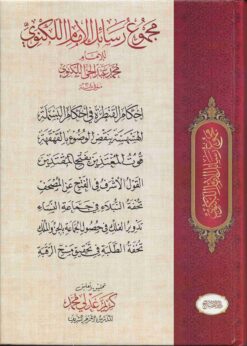 مجموع رسائل الإمام اللكنوي
للإمام
محمد عبد الحي اللكنوي
إحكام القنطرة في أحكام البسملة
الهسهسة بنقض الوضوء بالقهقهة
قوت المغتذين بفتح المقتدين
القول الأشرف في الفتح عن المصحف
تحفة النبلاء في جماعة النساء
تدوير الفلك في حصول الجماعة بالجن والملك
تحفة الطلبة في تحقيق مسح الرقبة
تحقيق وتعليق
مجموع رسائل الإمام اللكنوي